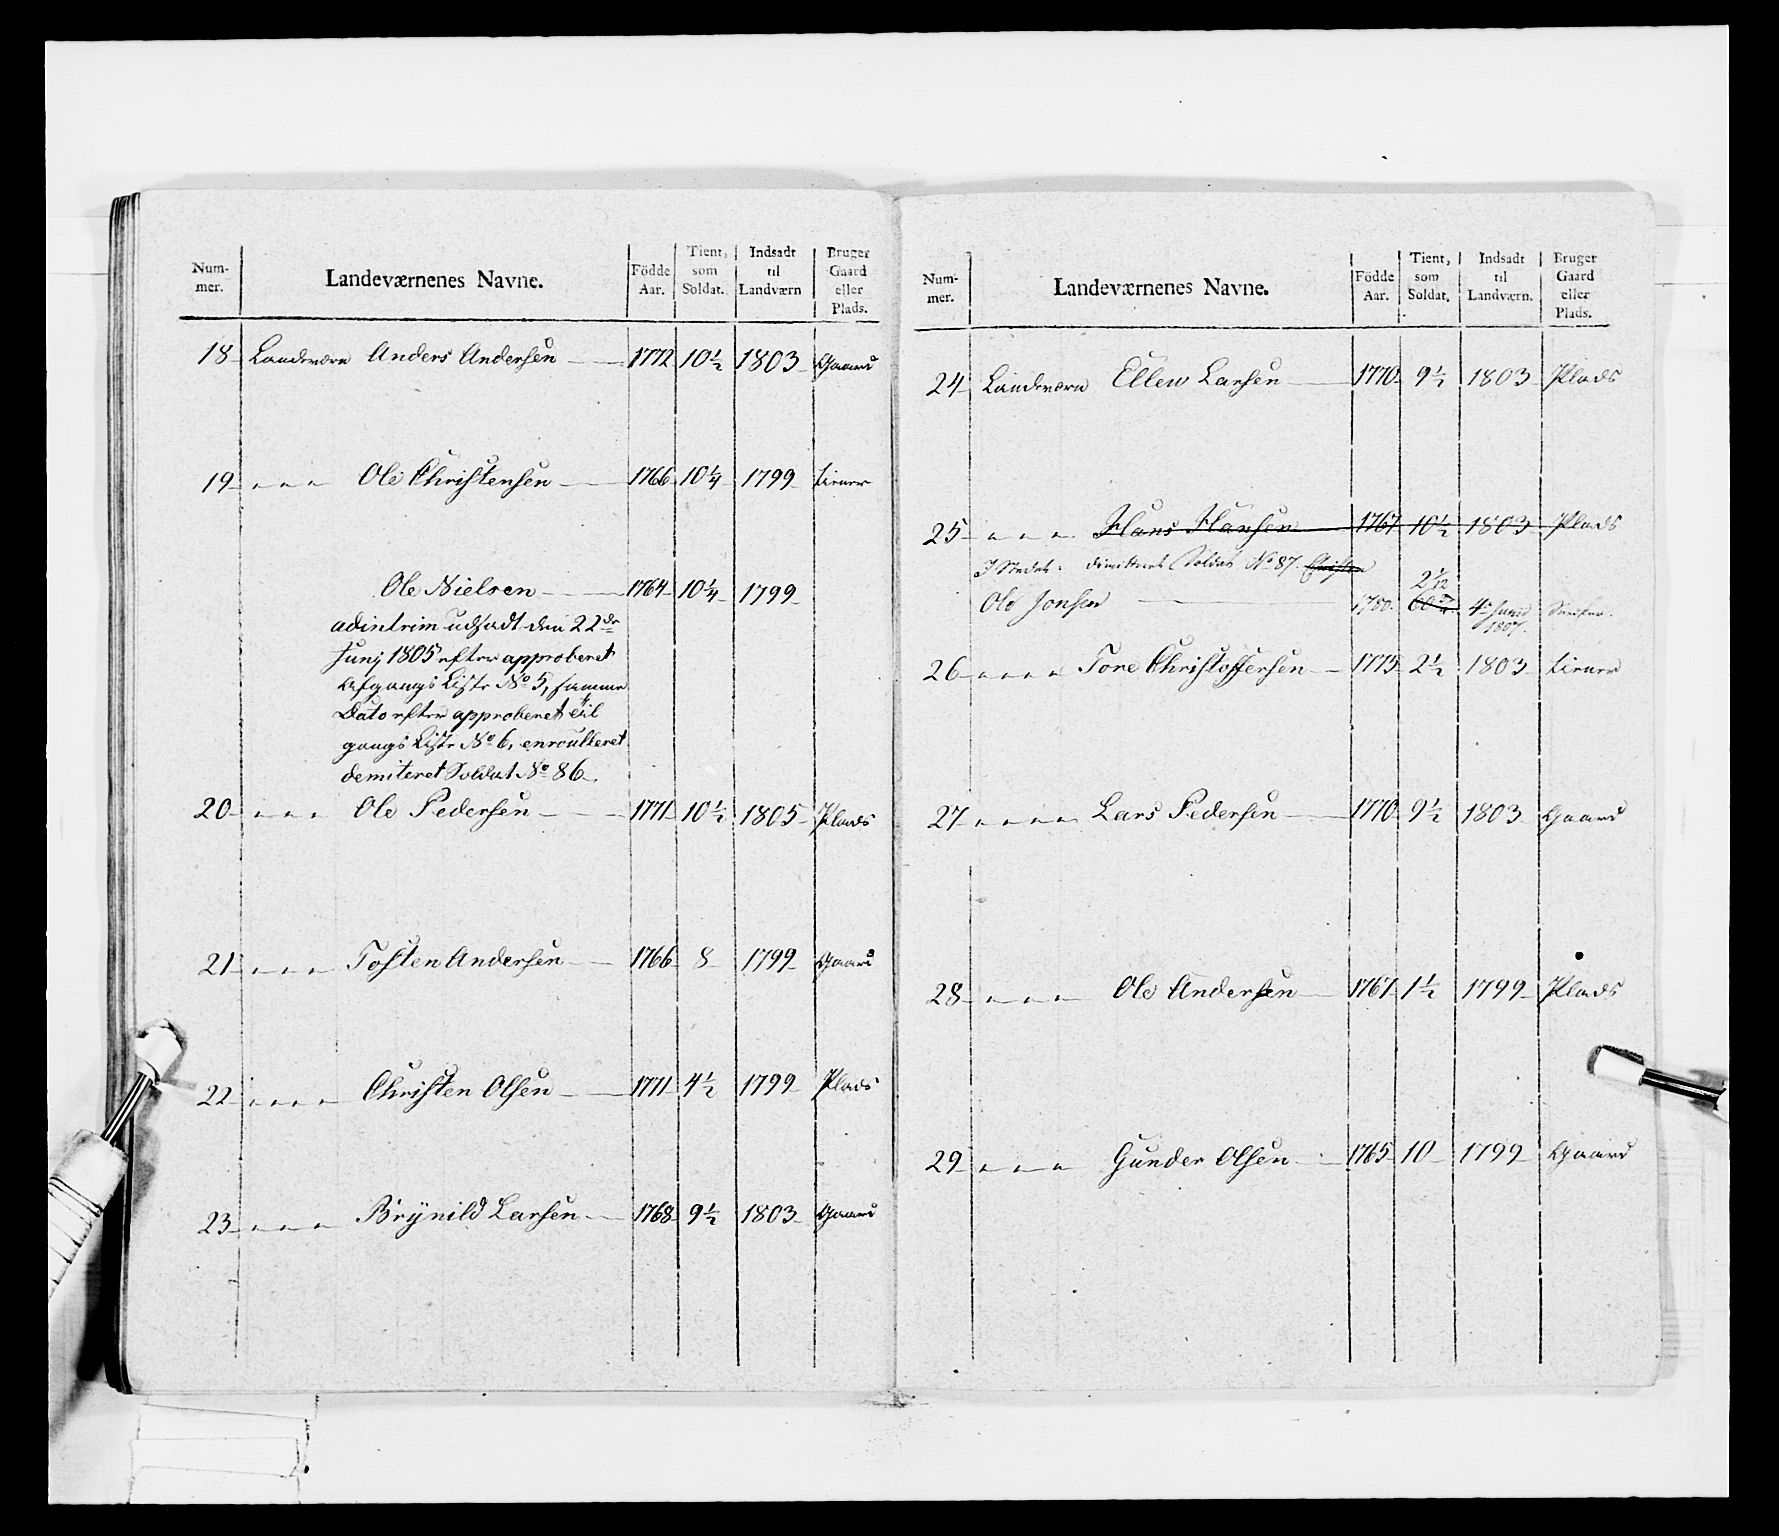 Num-mer. Landeværnenes Navne. Födde Aar. Tient, som Soldat. Indsadt til Landværn Bruger Gaard eller Plads.
18 Landeværn Anders Andersen 1772 10½ 1803 Gaard
19 " " " Ole Christensen 1766 10¼ 1799 tiener
Ole Nielsen 1764 10¼ 1799
adintrim udsadt den 22de
Junj 1805 efter approberet
Afgangs Liste No 5, samme
Dato efter approberet til
gangs Liste No 6, enroulleret
demiteret Soldat No 86
20 " " " Ole Pedersen 1771 10½ 1805 Plads
21 " " " Tosten Andersen 1766 8 1799 Gaard
22 " " " " Christen Olsen 1771 4½ 1799 Plads
23 " " " Brÿnild Larsen 1768 9½ 1803 Gaard
Num-mer. Landeværnenes Navne. Födde Aar. Tient, som Soldat. Indsadt til Landværn. Bruger Gaard eller Plads.
24 Landeværn Ellew Larsen 1770 9½ 1803 Plads
25 " " " Hans Hansen 1767 10½ 1803 Plads
I Stedet: dimitteret Soldat No 87. Christen
Ole Jonsen 1780. 2 1/12 4de Junii 1807.
26 " " " " Tore Christoffersen 1775 2½ 1803 tiener
27 " " " " Lars Pedersen 1770 9½ 1803 Gaard
28 " " " Ole Andersen 1767 1½ 1799 Plads
29 " " " Gunder Olsen 1765 10 1799 Gaard